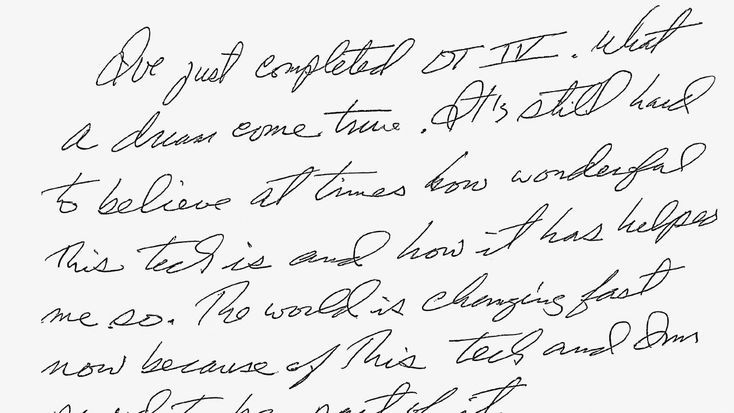 I've just completed OT IV. What
a dream come true. It's still hard
to believe at times how wonderful
this tech is and how it has helped
me so. The world is changing fast
now because of this tech and I'm
proud to be part of it